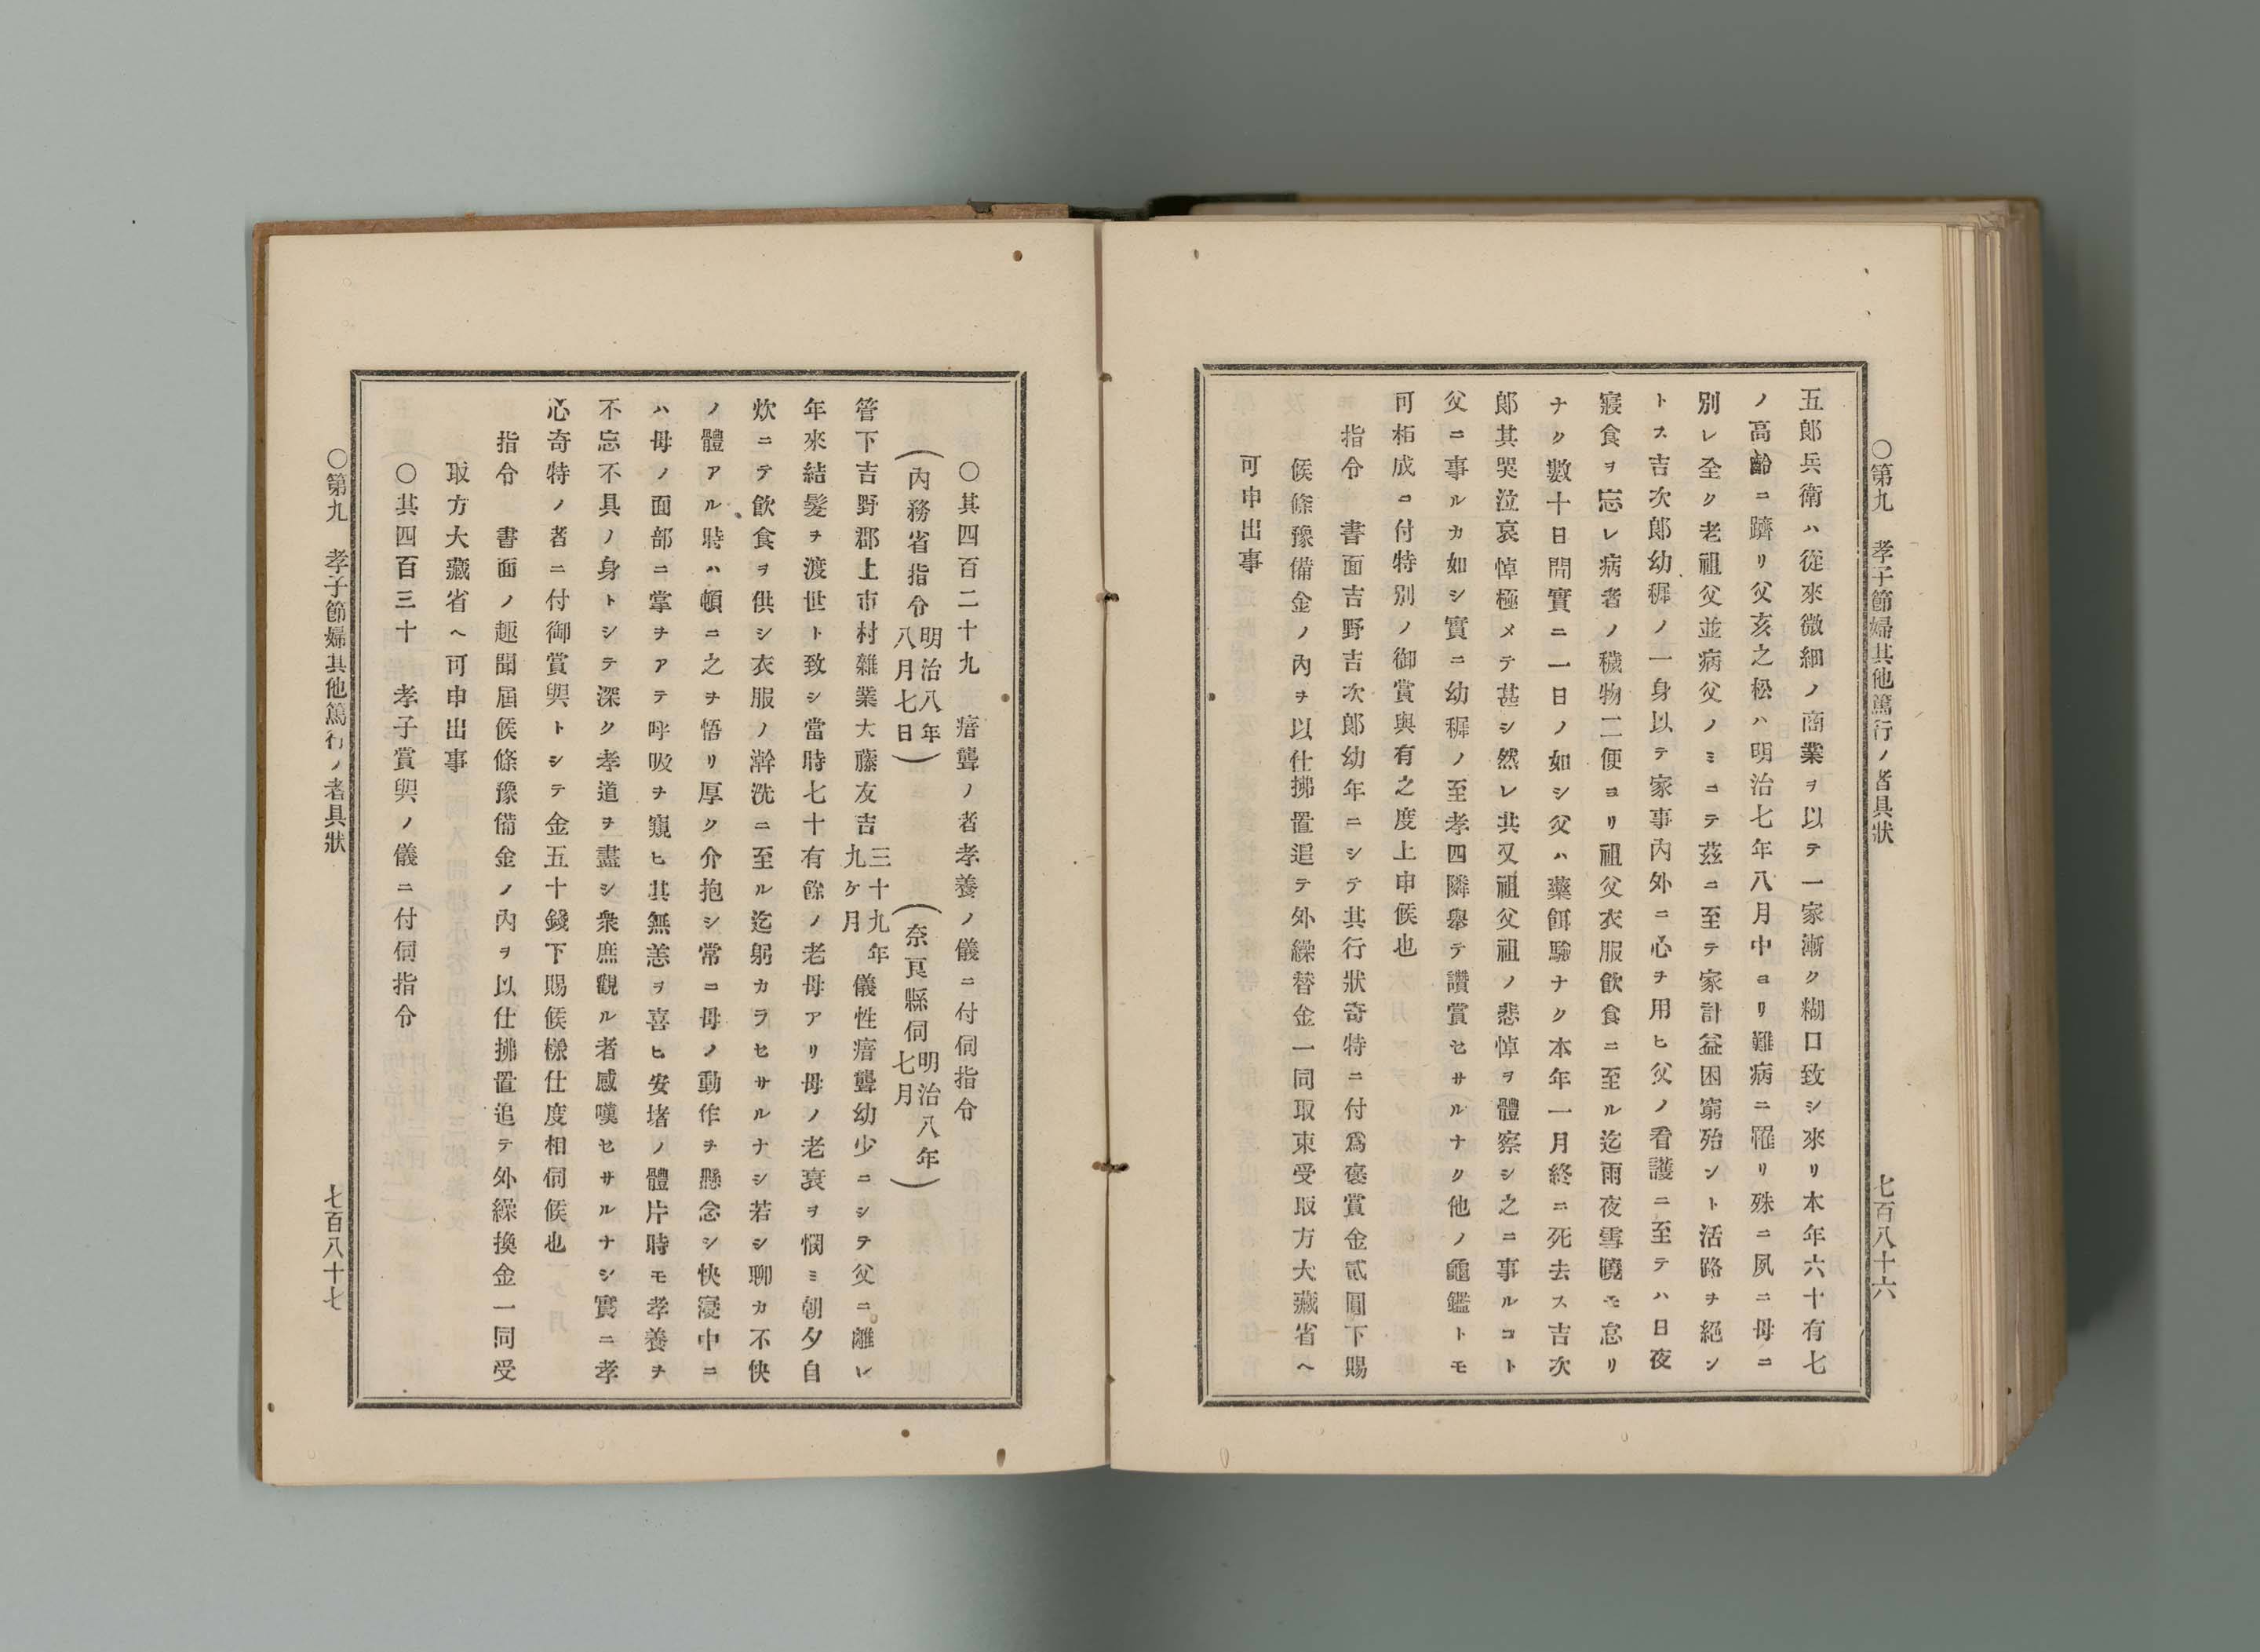 ○第九　孝子節婦其他篤行ノ者具狀　七百八十六
五郎兵衛ハ從來微細ノ商業ヲ以テ一家漸ク糊口致シ來リ本年六十有七
ノ高齡ニ躋リ父亥之松ハ明治七年八月中ヨリ難病ニ罹リ殊ニ夙ニ母ニ
別レ全ク老祖父並病父ノミニテ茲ニ至テ家計益困窮殆ント活路ヲ絕ン
トス吉次郎幼穉ノ一身以テ家事內外ニ心ヲ用ヒ父ノ看護ニ至テハ日夜
寢食ヲ忘レ病者ノ穢物二便ヨリ祖父衣服飮食ニ至ル迄雨夜雪曉モ怠リ
ナク數十日間實ニ一日ノ如シ父ハ藥餌驗ナク本年一月終ニ死去ス吉次
郎其哭泣哀悼極メテ甚シ然レ共又祖父祖ノ悲悼ヲ體察シ之ニ事ルコト
父ニ事ルカ如シ實ニ幼穉ノ至孝四隣擧テ讚賞セサルナク他ノ龜鑑トモ
可相成ニ付特別ノ御賞與有之度上申候也
指令　書面吉野吉次郎幼年ニシテ其行狀奇特ニ付爲褒賞金貳圓下賜
候條豫備金ノ內ヲ以仕拂置追テ外繰替金一同取束受取方大藏省ヘ
可申出事
○其四百二十九　瘖聾ノ者孝養ノ儀ニ付伺指令
（內務省指令明治八年八月七日）　（奈良縣伺明治八年七月）
管下吉野郡上市村雜業大藤友吉三十九年九ケ月儀性瘖聾幼少ニシテ父ニ離レ
年來結髮ヲ渡世ト致シ當時七十有餘ノ老母アリ母ノ老衰ヲ憫ミ朝夕自
炊ニテ飮食ヲ供シ衣服ノ澣洗ニ至ル迄躬カラセサルナシ若シ聊カ不快
ノ體アル時ハ頓ニ之ヲ悟リ厚ク介抱シ常ニ母ノ動作ヲ懸念シ快寢中ニ
ハ母ノ面部ニ掌ヲアテ呼吸ヲ窺ヒ其無恙ヲ喜ヒ安堵ノ體片時モ孝養ヲ
不忘不具ノ身トシテ深ク孝道ヲ盡シ衆庶觀ル者感嘆セサルナシ實ニ孝
心奇特ノ者ニ付御賞與トシテ金五十錢下賜候樣仕度相伺候也
指令　書面ノ趣聞屆候條豫備金ノ內ヲ以仕拂置追テ外繰換金一同受
取方大藏省ヘ可申出事
○其四百三十　孝子賞與ノ儀ニ付伺指令
○第九　孝子節婦其他篤行ノ者具狀　七百八十七